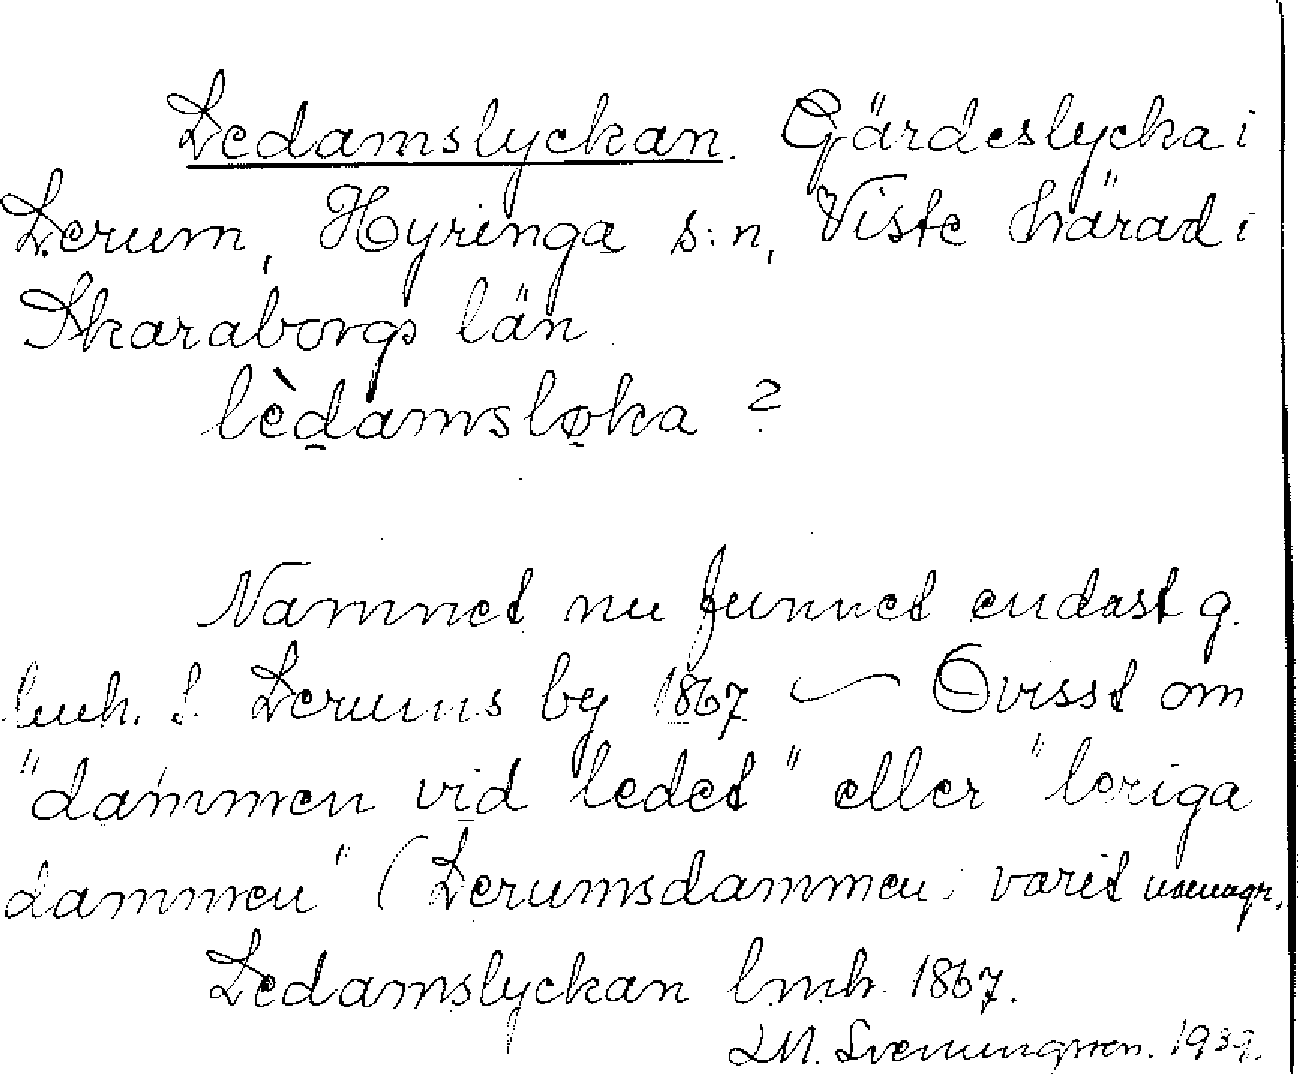 Ledamslyckan. Gärdeslycka i
Lerum, Hyringa s:n, Viste härad i
Skaraborgs län.
lèdamsløka ?
Namnet nu funnet endast g.
lmh. f. Lerums by 1867 ~ Ovisst om
"dammen vid ledet" eller "leriga
dammen" (Lerumsdammen; varit
Ledamslyckan lmh. 1867.
LM. Svenungsson. 1939.